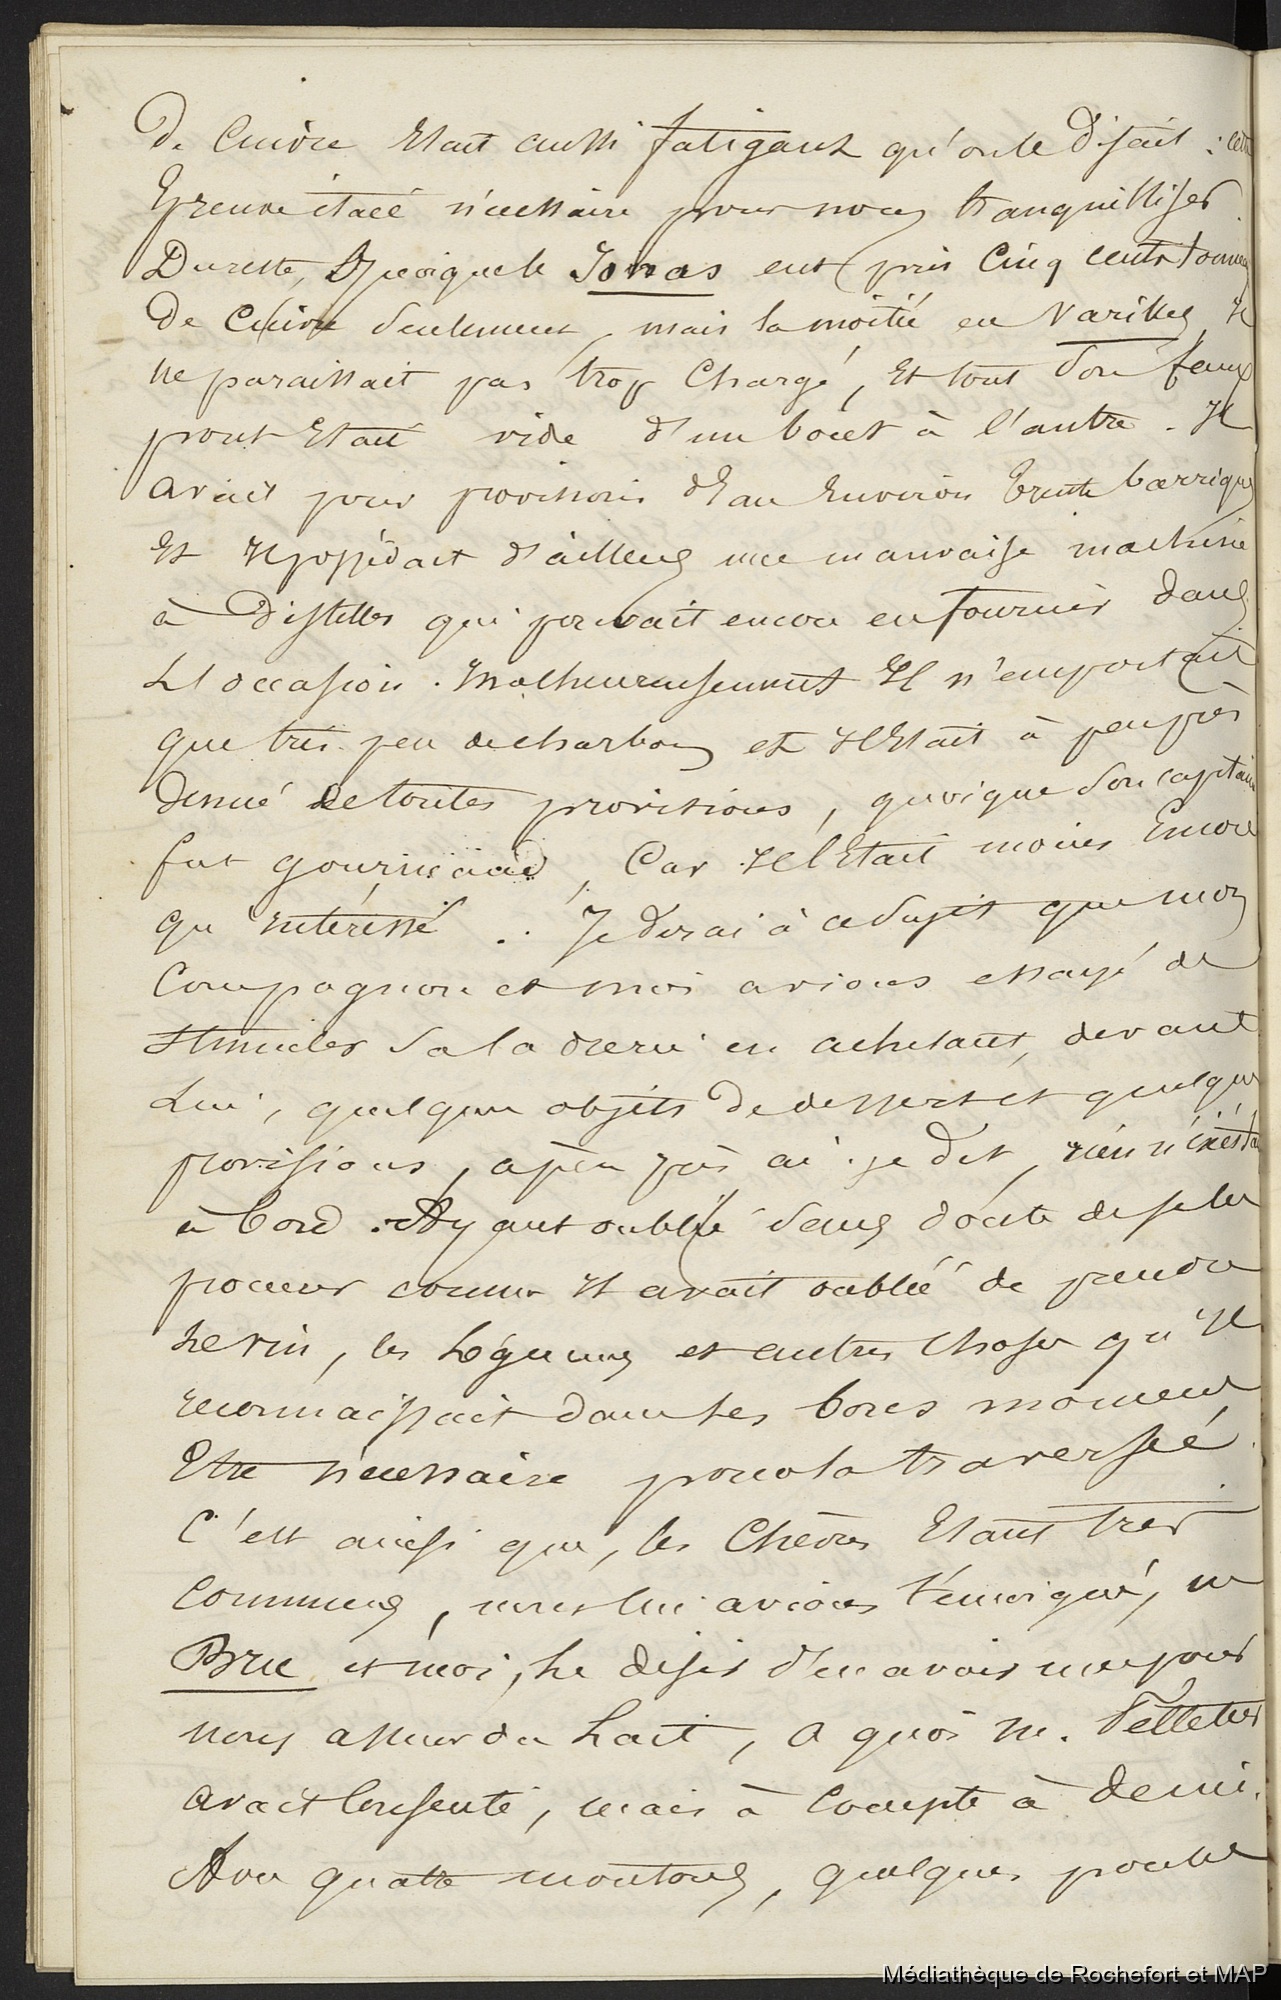 De Cuivre Etait aussi fatigant qu'on le Disait : cette
Epreuve était nécessaire pour nous tranquilliser.
Du reste, Quoique le Jonas eut pris Cinq cents tonneaux
De Cuivre seulement, mais la moitié en Varilles, Il
ne paraissait pas trop Chargé, Et tout son faux
pont Etait vide d'un bout à l'autre. Il
avait pour provisions d'Eau Environ trente barriques
Et Il possédait d'ailleurs une mauvaise machine
à Distiller qui pouvait encore en fournir dans
L'occasion. Malheureusement Il n'emportait
que très peu de charbon et Il Etait à peu près
denué de toutes provisions, quoique son capitaine
fut gourmand, Car Il Etait moins Encore
qu'intéressé. Je dirai à ce sujet que mon
Compagnon et moi avions essayé de
stimuler sa ladrerie en achetant, devant
Lui, quelques objets De dessert et quelques
provisions, à peu près ai-je dit, rien n'existait
à bord. Ayant oublié sans doute de se les
procurer comme Il avait oublié de prendre
Le vin, les Légumes et autres Choses qu'Il
reconnaissait dans ses bons moments
Etre nécessaire pour la traversée.
C'est ainsi que, les Chèvres Etant très
Communes, nous lui avions témoigné, m
Bru et moi, Le désir d'en avoir une pour
nous assurer du Lait, à quoi m. Pelletier
avait Consenti, mais à Compte à demi.
Avec quatre moutons, quelques poules